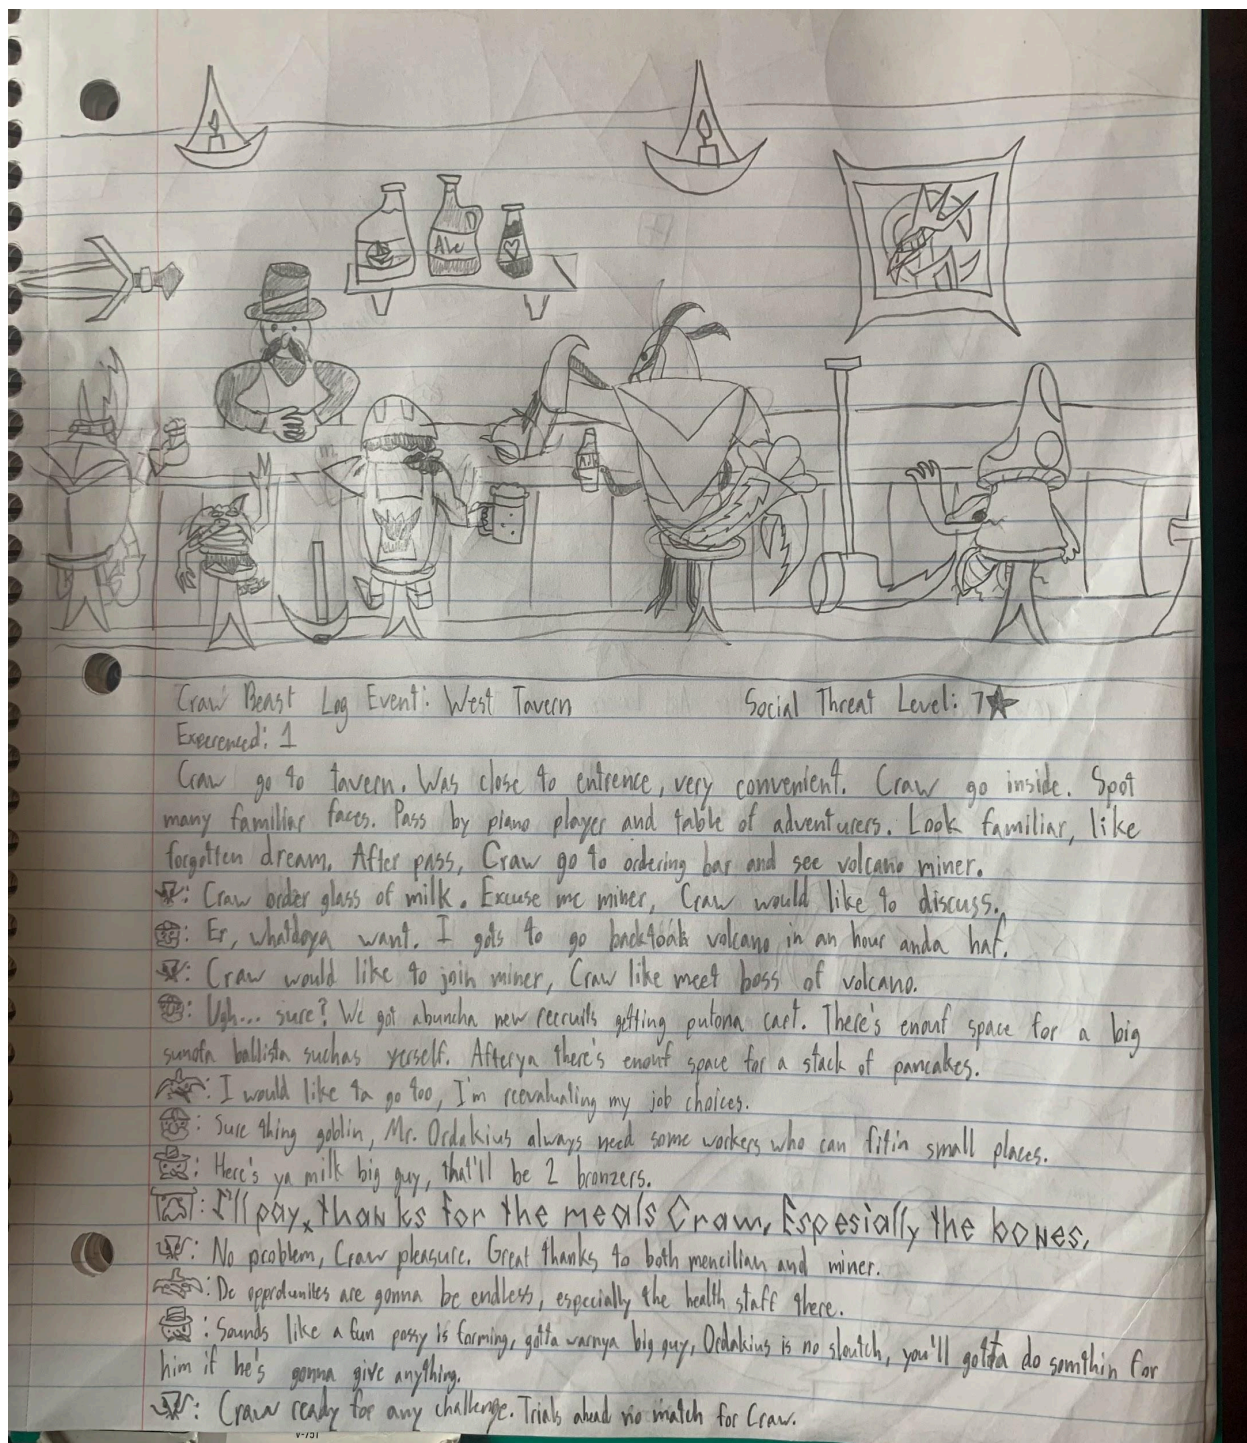 Ale
Craw Beast Log Event: West Tavern Social Threat Level: 7★
Exeerenced: 1
Craw go to tavern. Was close to entrence, very convenient. Craw go inside. Spot
many familiar faces. Pass by piano player and table of adventurers. Look familiar, like
forgotten dream. After pass, Craw go to ordering bar and see volcano miner.
: Craw order glass of milk. Excuse me miner, Craw would like to discuss.
: Er, whatdoya want. I gots to go backtoak volcano in an hour anda haf.
: Craw would like to join miner, Craw like meet boss of volcano.
: Ugh... sure? We got abuncha new recruits getting putona cart. There's enouf space for a big
sunofa ballista suchas yerself. Afterya there's enouf space for a stack of pancakes.
: I would like ta go too, I'm reevaluating my job choices.
: Sure thing goblin, Mr. Ordakius always need some workers who can fitin small places.
: Here's ya milk big guy, that'll be 2 bronzers.
: I'll pay, thanks for the meals Craw, Espesially the bones.
: No problem, Craw pleasure. Great thanks to both mencilian and miner.
: De opprotunites are gonna be endless, especially the health staff there.
: Sounds like a fun possy is forming, gotta warnya big guy, Ordakius is no sloutch, you'll gotta do somthin for
him if he's gonna give anything.
: Craw ready for any challenge. Trials ahead no match for Craw.
V-751